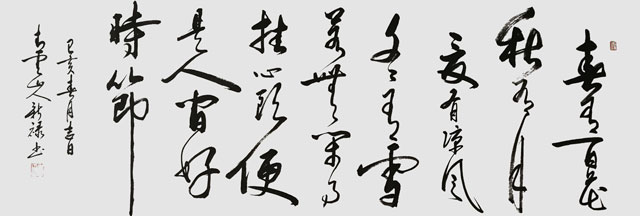 春有百花
秋有月
夏有凉风
冬有雪
若無闲事
挂心头便
是人间好
時節
己亥春月吉日
云山人新禄书